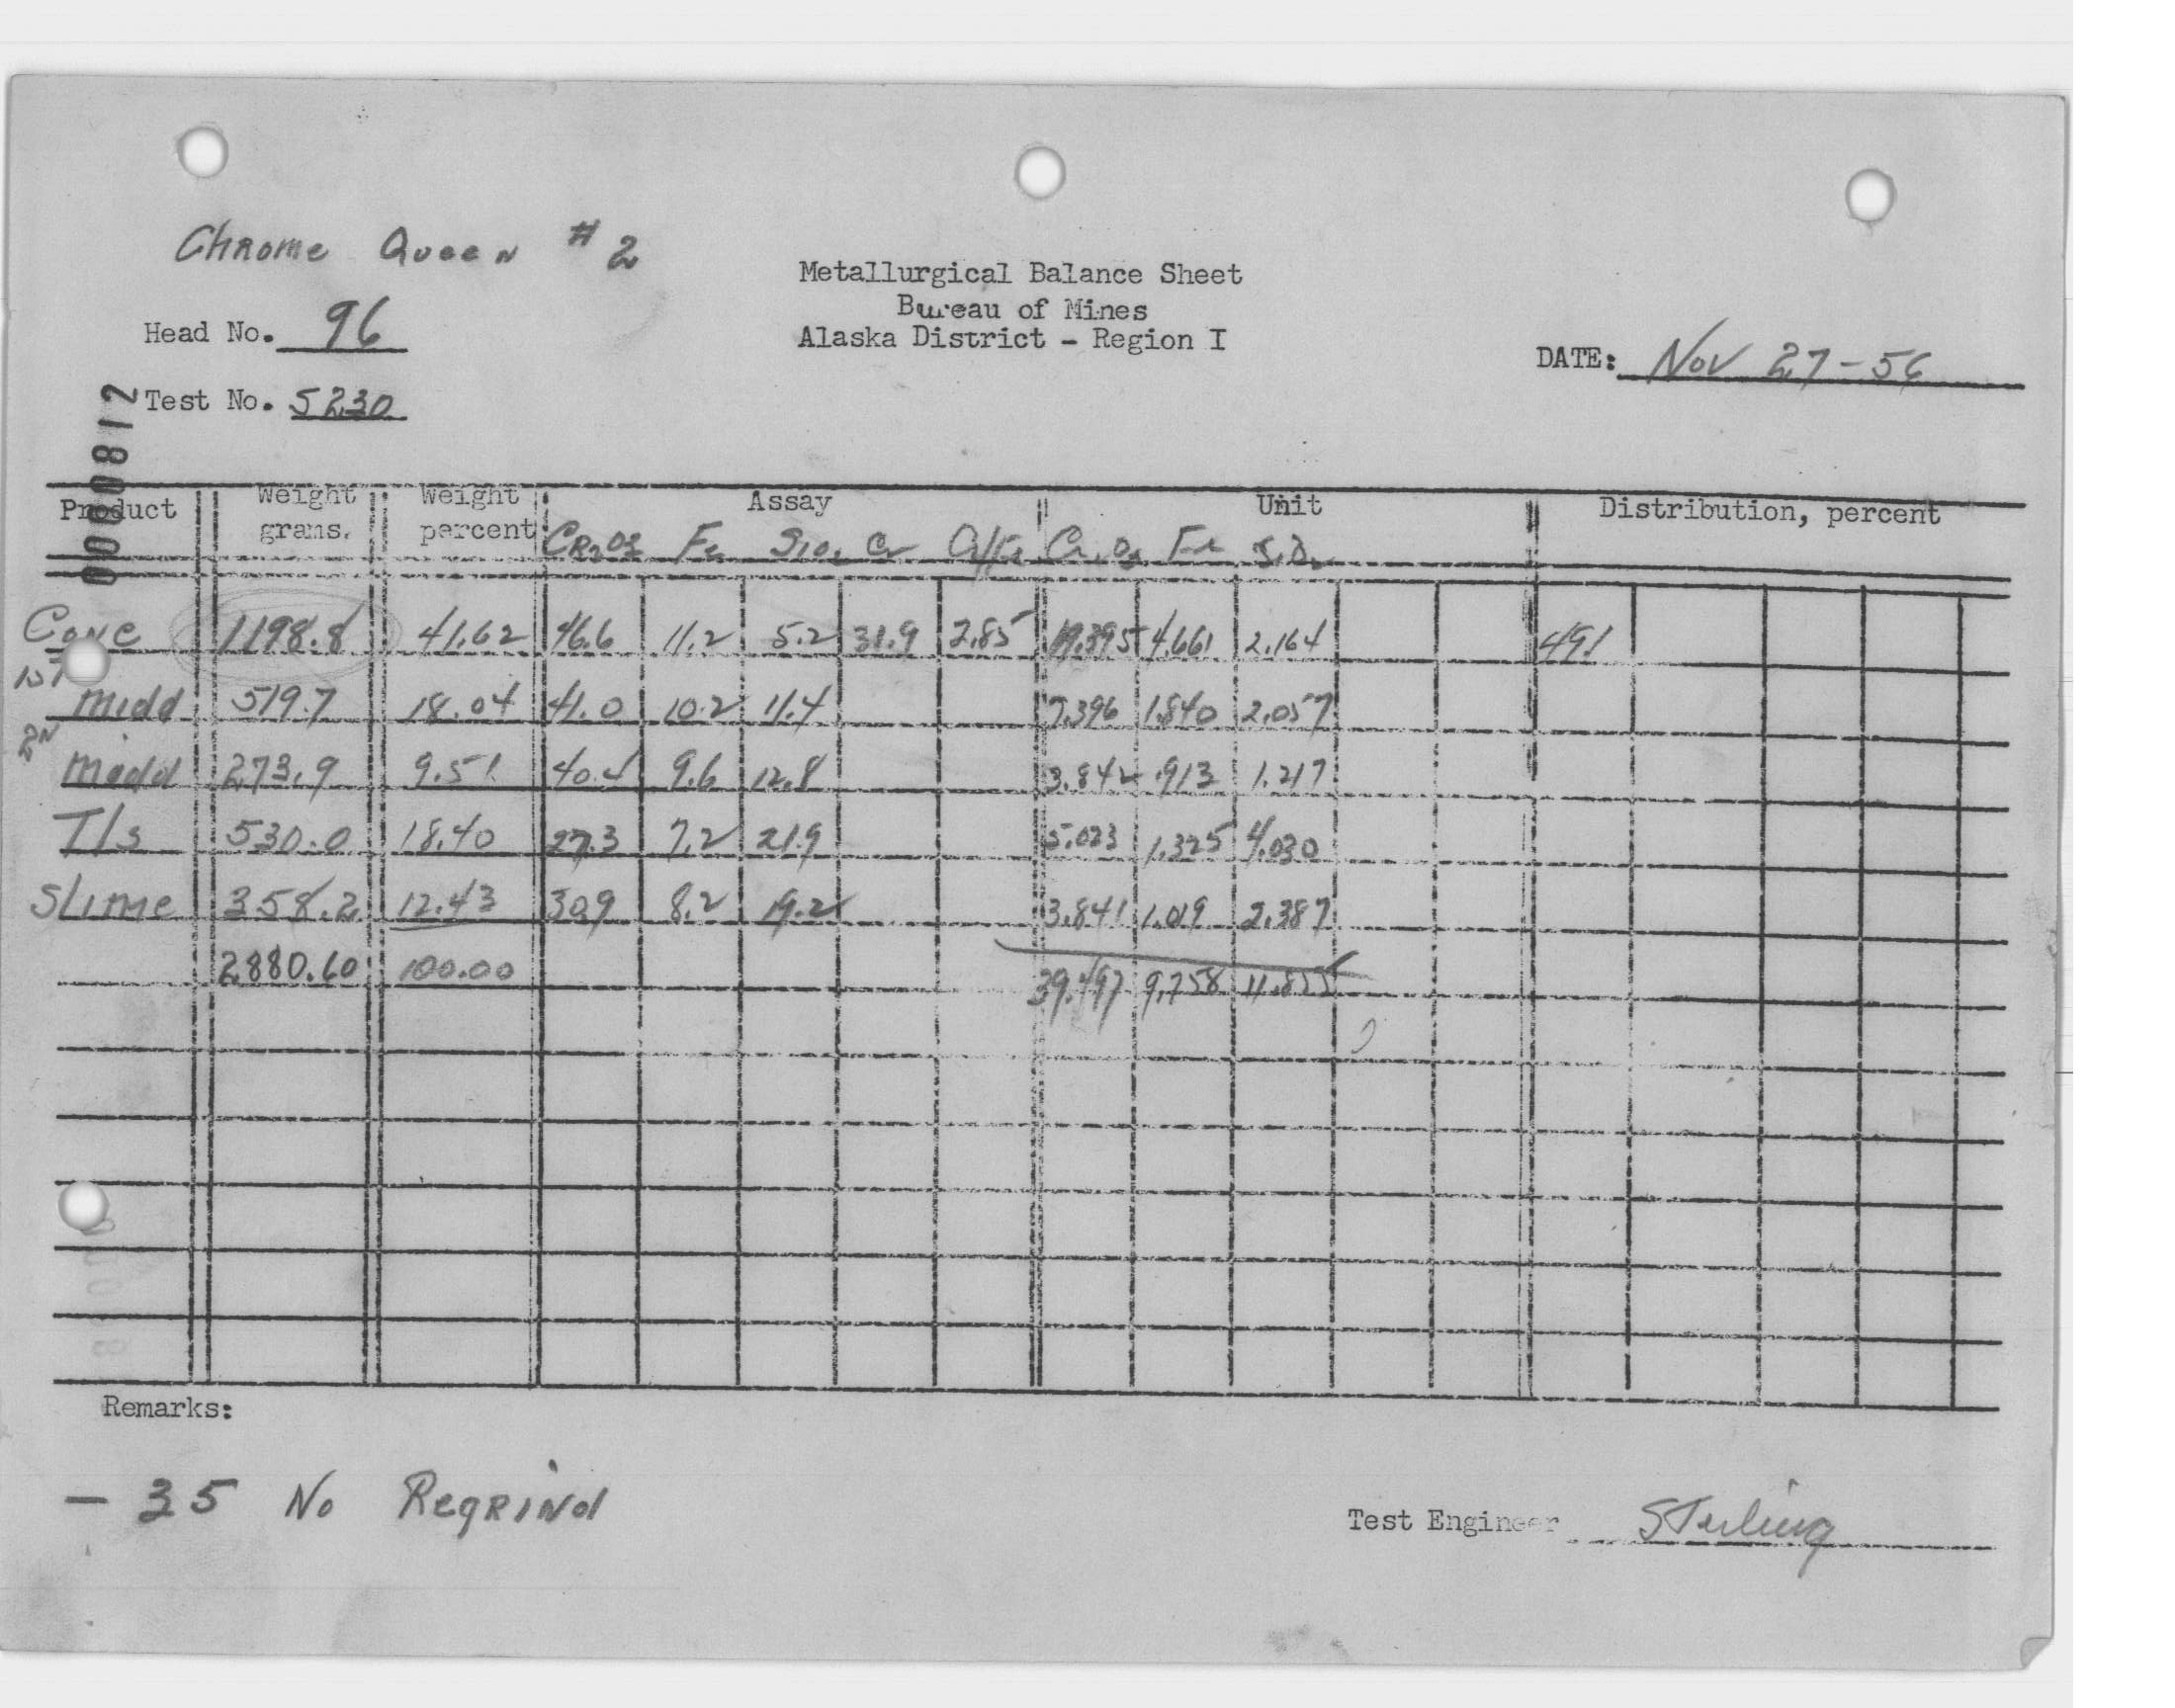 Chrome Queen # 2
Metallurgical Balance Sheet
Bureau of Mines
Alaska District - Region I
Head No. 96
DATE: Nov 27-56
Test No. 5230
0000812
Product Weight grams. Weight percent Assay Unit Distribution, percent
Cr2O3 Fe SiO2 Cr Cr/Fe Cr2O3 Fe SiO2
Conc 1198.8 41.62 46.6 11.2 5.2 31.9 2.85 19.395 4.661 2.164 49.1
1st Midd 519.7 18.04 41.0 10.2 11.4 7.396 1.840 2.057
2N Midd 273.9 9.51 40.4 9.6 12.8 3.842 .913 1.217
T/s 530.0 18.40 27.3 7.2 21.9 5.023 1.325 4.030
Slime 358.2 12.43 30.9 8.2 19.2 3.841 1.019 2.387
2880.60 100.00 39.497 9.758 11.855
Remarks:
- 35 No Regrind
Test Engineer Sterling